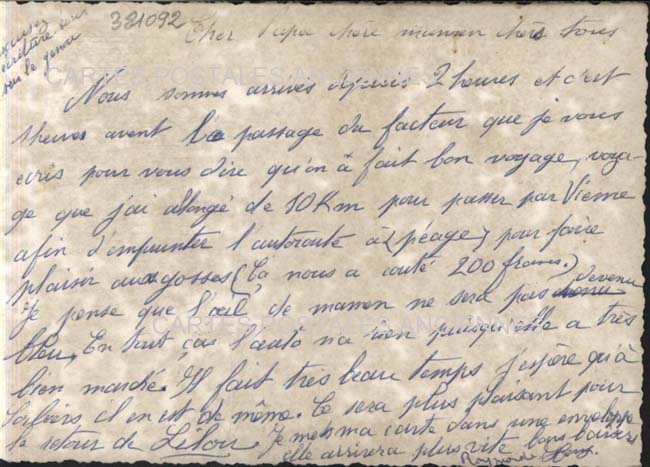 excusez
écriture
sur le genou
381092
Cher Papa chère maman chers tous
CARTES POSTALES ANCIENNES
Nous sommes arrivés depuis 2 heures et c'est
1 heure avant le passage du facteur que je vous
écris pour vous dire qu'on à fait bon voyage, voya-
ge que j'ai allongé de 10 Km pour passer par Vienne
afin d'emprunter l'autoroute à (péage) pour faire
plaisir aux gosses (Ça nous a couté 200 francs.)
Je pense que l'œil de maman ne sera pas devenu
bleu, En tout cas l'auto n'a rien puisqu'elle a très
CARTES POSTALES ANCIENNES
bien marché. Il fait très beau temps j'espère qu'à
il en est de même. Ce sera plus plaisant pour
le retour de Lilou. Je mets ma carte dans une enveloppe
elle arrivera plus vite bons baisers